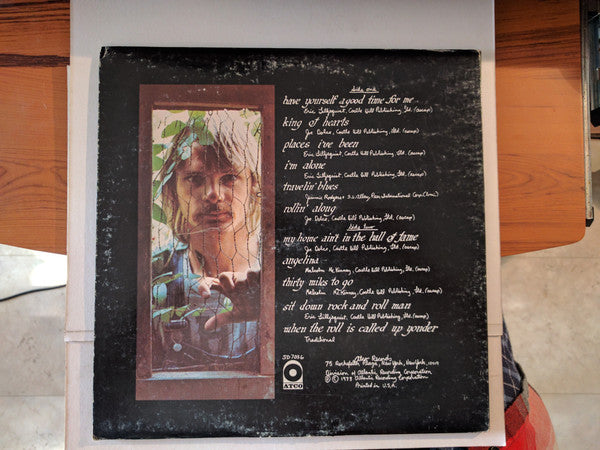 Side one
have yourself a good time for me
Eric Lillyequist, Castle Hill Publishing, Ltd. (ascap)
king of hearts
Joe Dolce, Castle Hill Publishing, Ltd. (ascap)
places i've been
Eric Lillyequist, Castle Hill Publishing, Ltd. (ascap)
i'm alone
Eric Lillyequist, Castle Hill Publishing, Ltd. (ascap)
travelin' blues
Jimmie Rodgers Peer International Corp. (bmi)
rollin' along
Joe Dolce, Castle Hill Publishing, Ltd. (ascap)
Side two
my home ain't in the hall of fame
Joe Dolce, Castle Hill Publishing, Ltd. (ascap)
angelina
Malcolm Mc Kinney, Castle Hill Publishing, Ltd. (ascap)
thirty miles to go
Malcolm Mc Kinney, Castle Hill Publishing, Ltd. (ascap)
sit down rock and roll man
Eric Lillyequist, Castle Hill Publishing, Ltd. (ascap)
when the roll is called up yonder
Traditional
SD 7016
ATCO
Atco Records
75 Rockefeller Plaza, New York, New York, 10019
Division of Atlantic Recording Corporation
© ℗ 1973 Atlantic Recording Corporation
Printed in U.S.A.